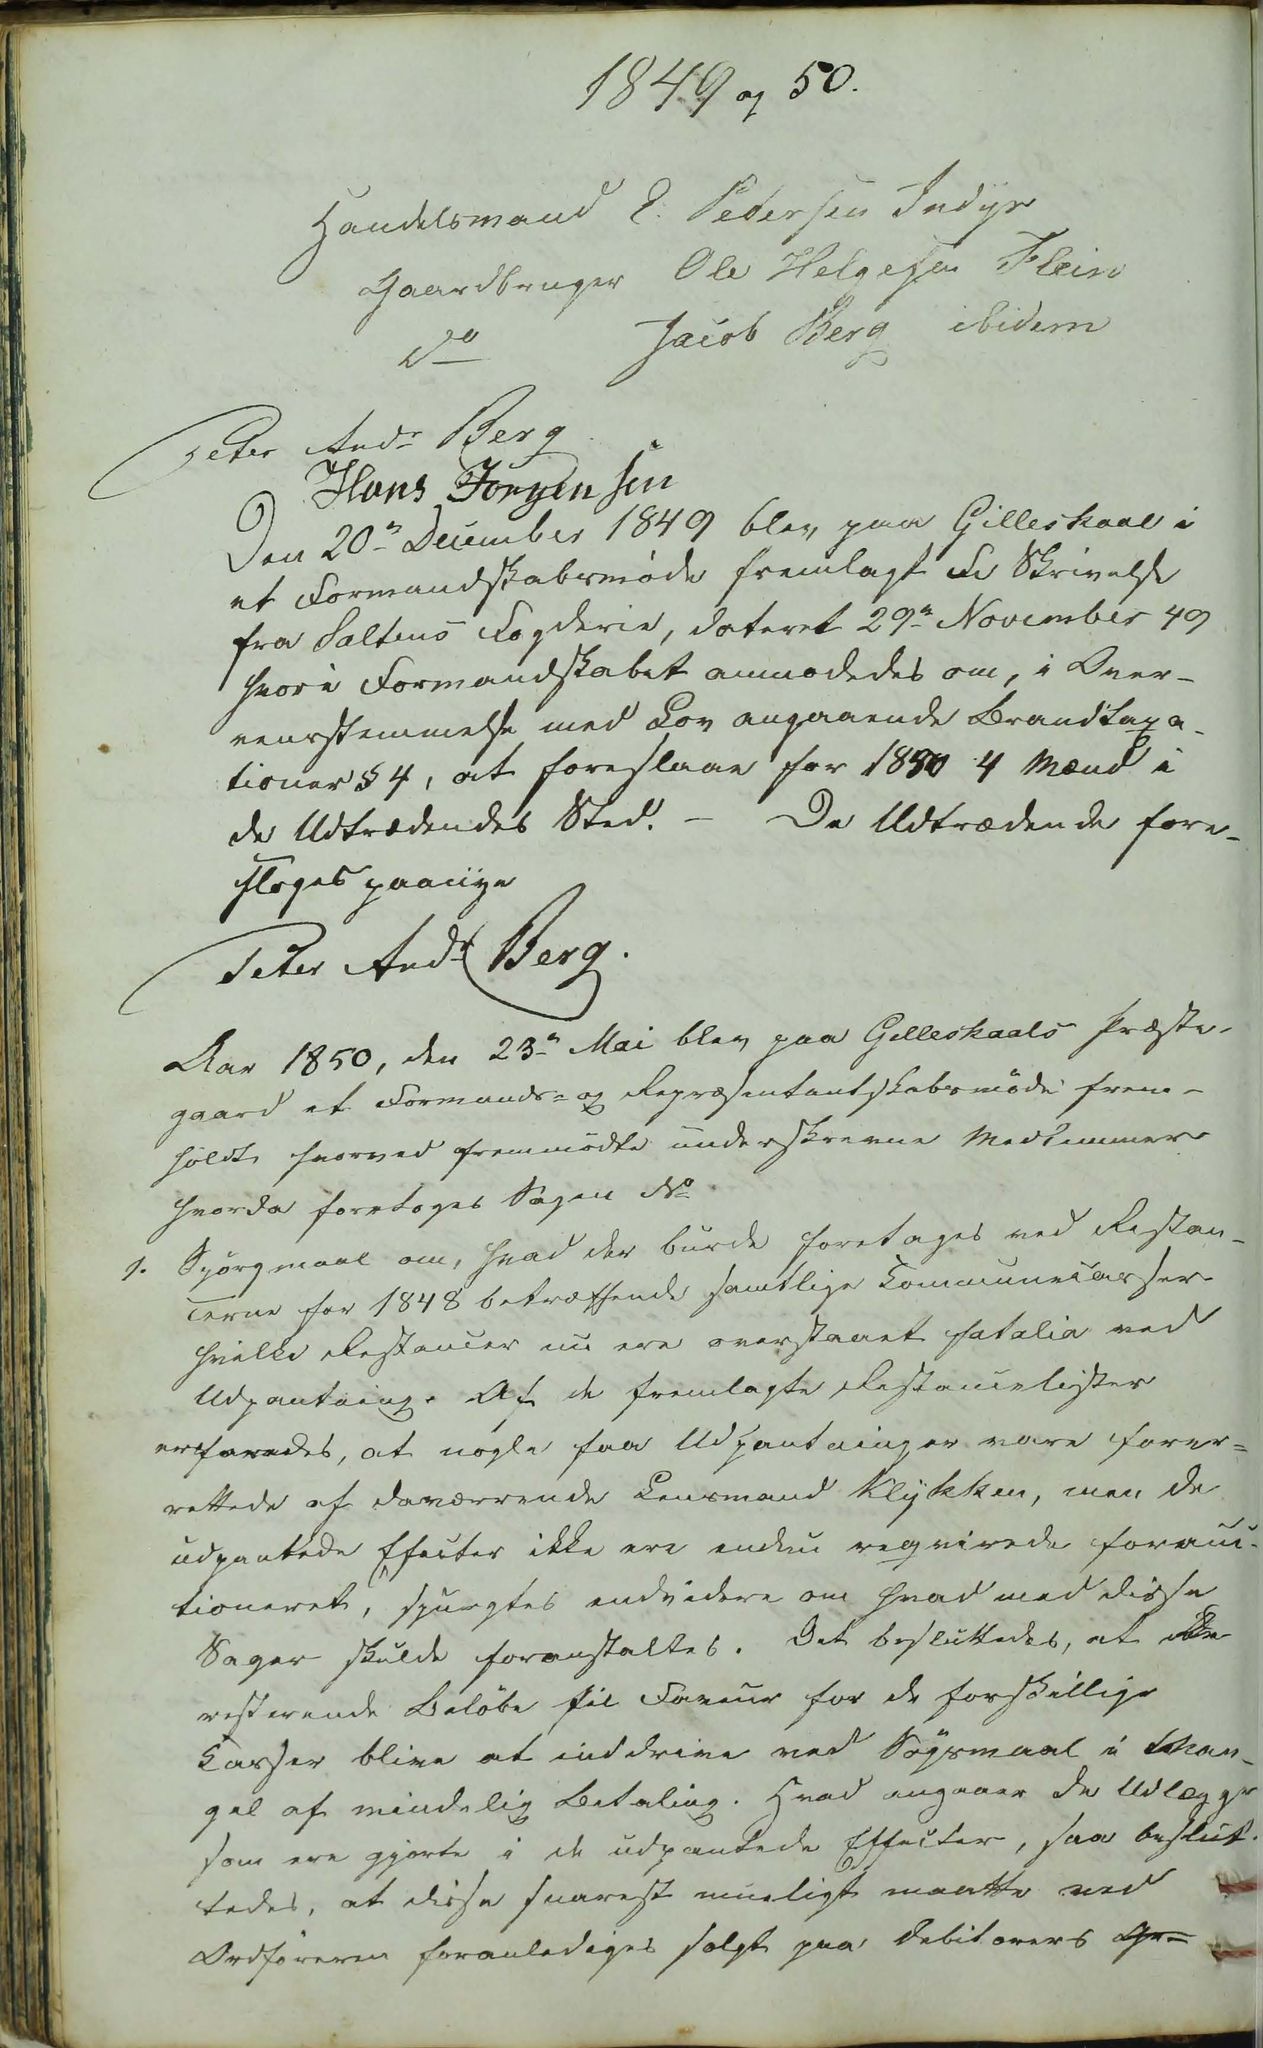 1849 og 50.
Handelsmand E. Pedersen Indyr
Gaardbruger Ole Helgesen Flein
do Jacob Berg ibidem
Peter Andr Berg
Hans Jørgensen
Den 20n December 1849 blev paa Gilleskaal i
et Formandskabsmøde fremlagt En Skrivelse
fra Saltens Fogderie, dateret 29n November 49
hvori Formandskabet anmodedes om, i Over-
eensstemmelse med Lov angaaende Brandtaxa-
tioner § 4, at foreslaae for 1850 4 Mænd i
de Udtrædendes Sted. - De Udtrædende fore-
sloges paanye
Peter Andr Berg.
Aar 1850, den 23n Mai blev paa Gilleskaals Præste-
gaard et Formands- og Repræsentantskabsmøde frem-
holdt hvorved fremmødte underskrevne Medlemmer
hvorda foretoges Sagen No
1. Spørgmaal om, hvad der burde foretages ved Restan-
cerne for 1848 betræffende samtlige Communecasser
hvilke Restancer nu ere overstaaet fatalia ved
Udpantning. Af de fremlagte Restancelister
erfaredes, at nogle faa Udpantninger vare forret-
rettede af daværende Lensmand Klykken, men de
udpantede Effecter ikke ere endnu reqvirede forauc-
tioneret, spurgtes endvidere om hvad med disse
Sager skulde foranstaltes. Det besluttedes, at
resterende Beløbe til Faveur for de forskillige
Casser blive at inddrive ved Søgsmaal i Man-
gel af mindelig Betaling. Hvad angaaer de Udlægge
som ere gjorte i de udpantede Effecter, saa beslut-
tedes, at disse snarest mueligt maatte ved
Ordføreren foranlediges solgt paa Debitorers